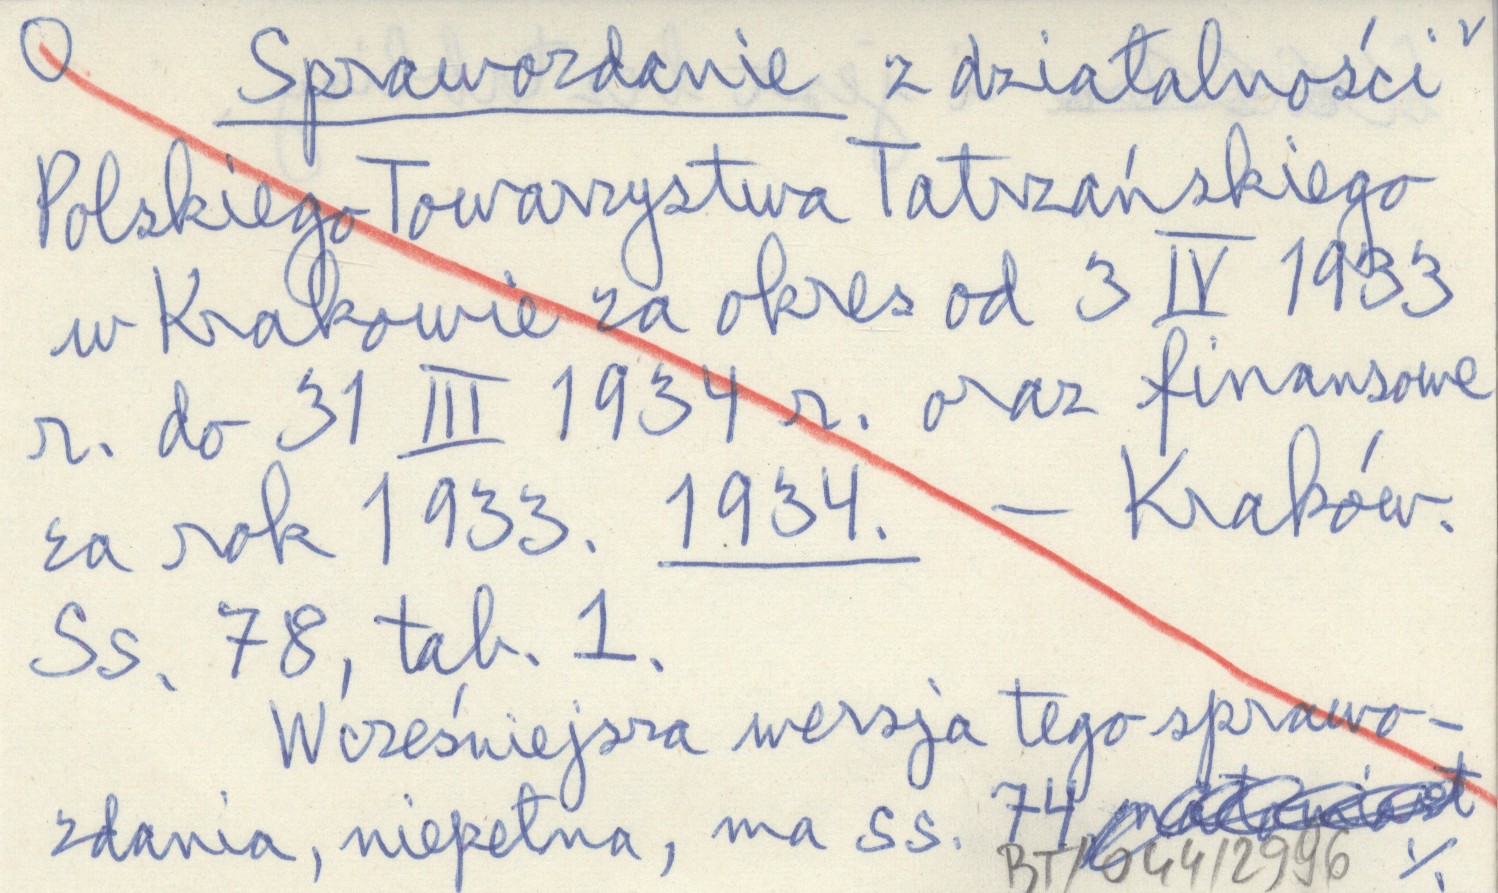 O Sprawozdanie z działalności v
Polskiego Towarzystwa Tatrzańskiego
w Krakowie za okres od 3 IV 1933
r. do 31 III 1934 r. oraz finansowe
za rok 1933. 1934. — Kraków.
Ss. 78, tab. 1.
Wcześniejsza wersja tego sprawo-
zdania, niepełna, ma ss. 74
BT/044/2996 ./.